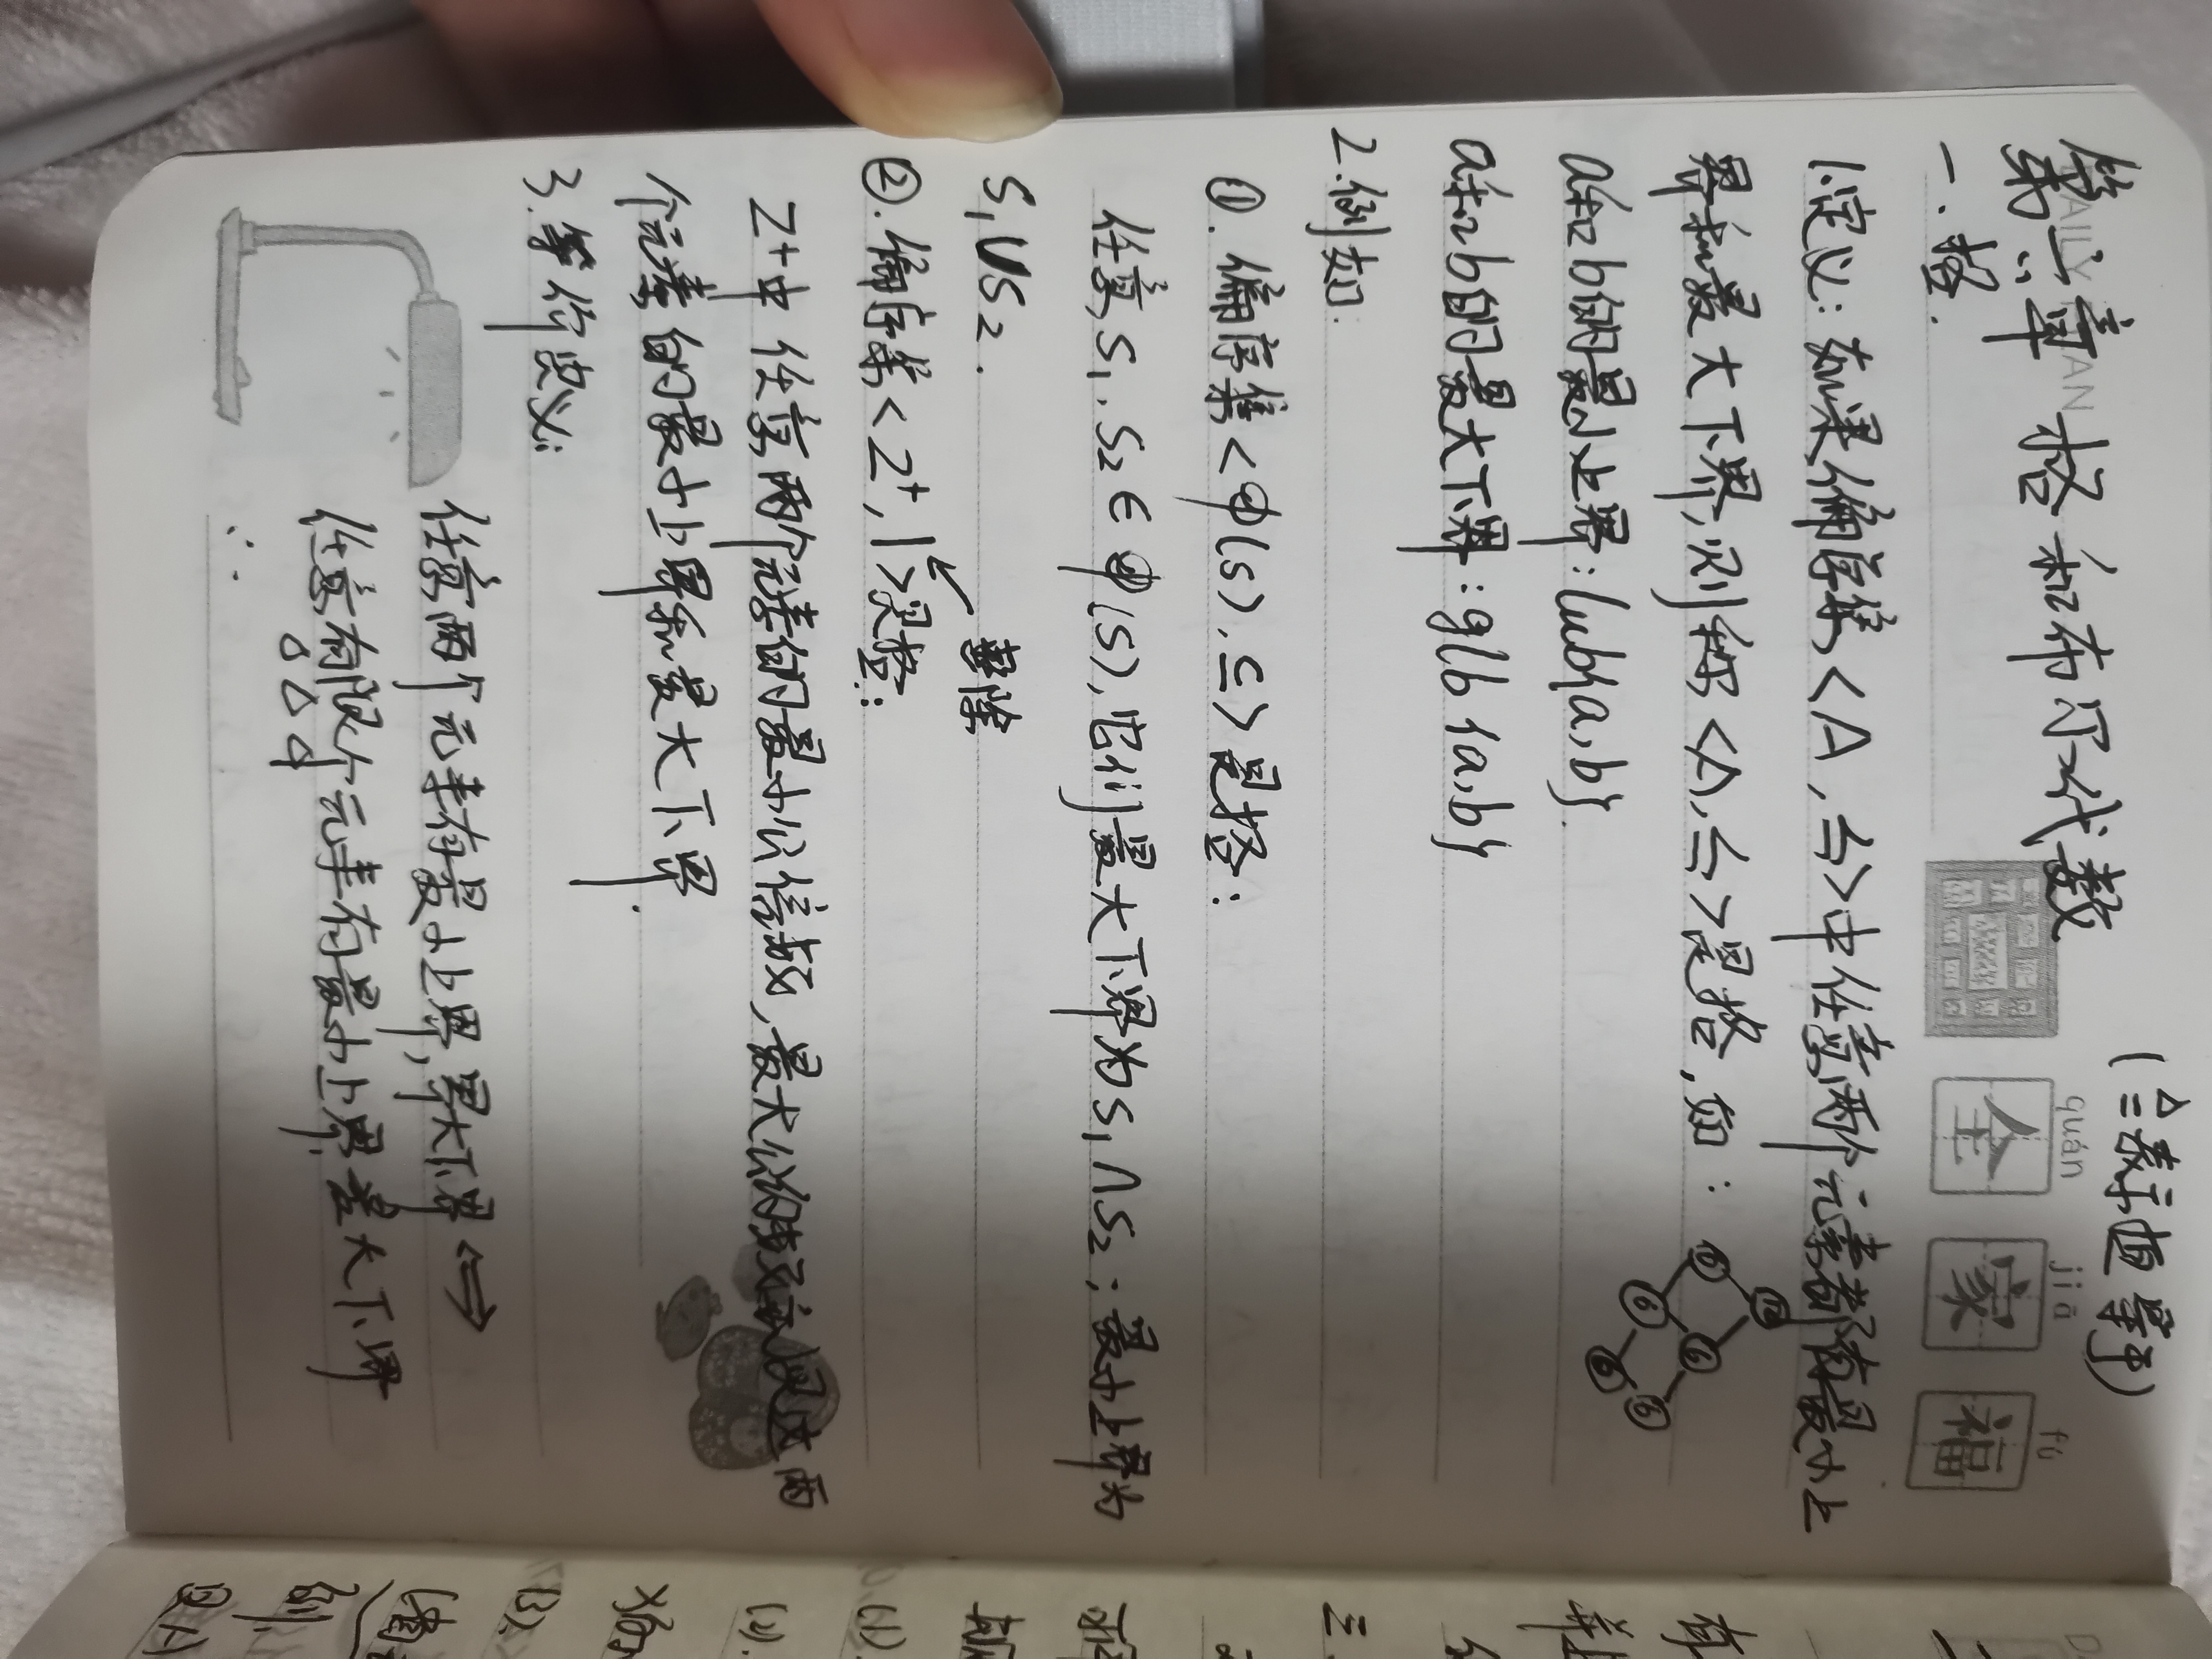 (≜表示值等)
DAILY PLAN
第六章 格和布尔代数
quán jiā fú
全 家 福
一.格.
1.定义:如果偏序集<A,≤>中任意两个元素都有最小上
界和最大下界,则称<A,≤>是格,如:
a和b的最小上界:lub{a,b}.
a和b的最大下界:glb{a,b}
2.例如:
①.偏序集<φ(s),⊆>是格:
任意S₁,S₂∈φ(S),它们最大下界为S₁∩S₂;最小上界为
S₁∪S₂.
整除
②.偏序集<Z⁺,|>是格:
Z⁺中任意两个元素的最小公倍数,最大公约数就是这两
个元素的最小上界和最大下界.
3.等价定义:
任意两个元素有最小上界,最大下界⇔
任意有限个元素有最小上界,最大下界